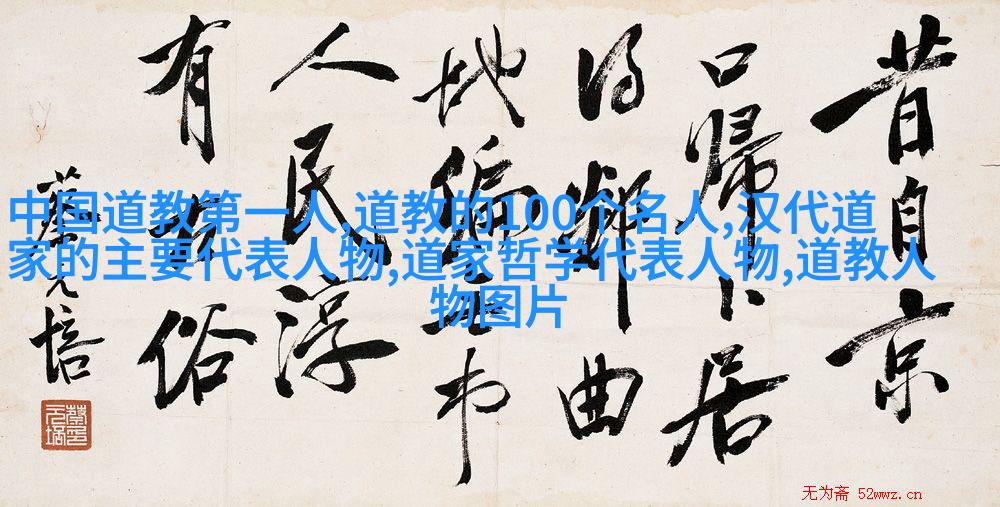 昔自京
口歸卜居
得鄰曲
地偏無市
人民淳
有俗
蔡元培
中国道教第一人,道教的100个名人,汉代道
家的主要代表人物,道家哲学代表人物,道教人
物图片
无为斋 52wwz.cn